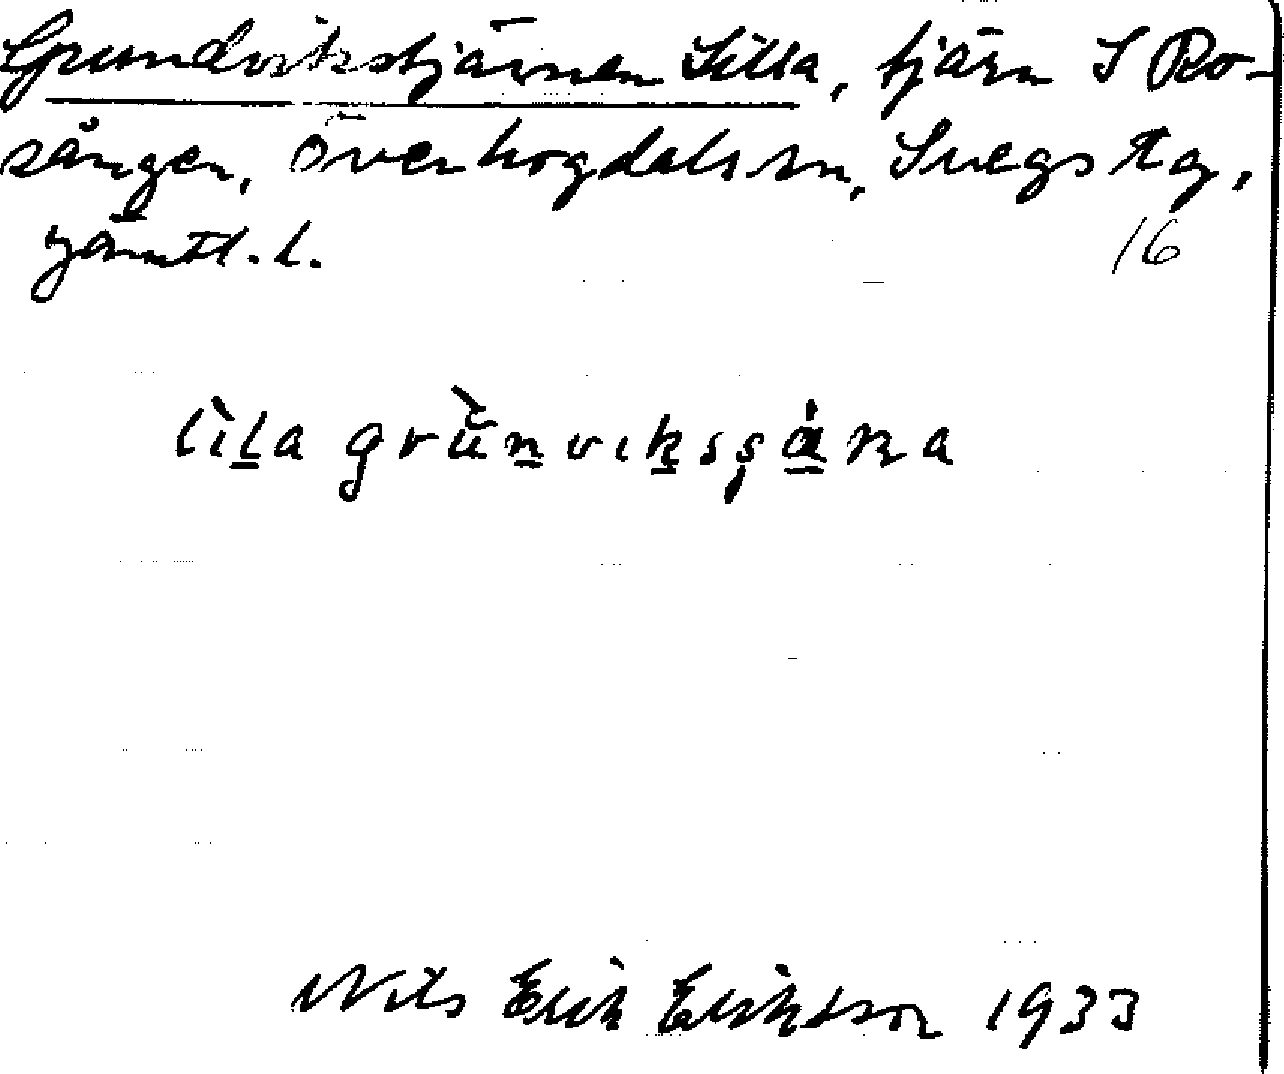 Grundvikstjärnen Lilla, tjärn S Ro-
sången, Överhogdals sn, Svegs tg,
Jämtl. l.
16
lila grunviksşäṇa
Nils Erik Eriksson 1933